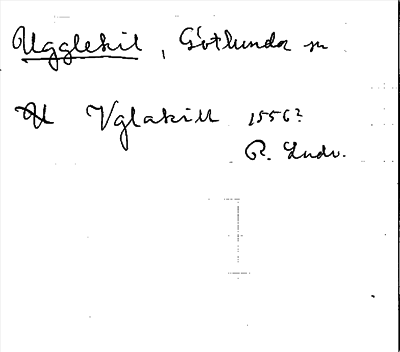 Ugglekil, Götlunda sn
Vglakill 1556?
R. Lundv.